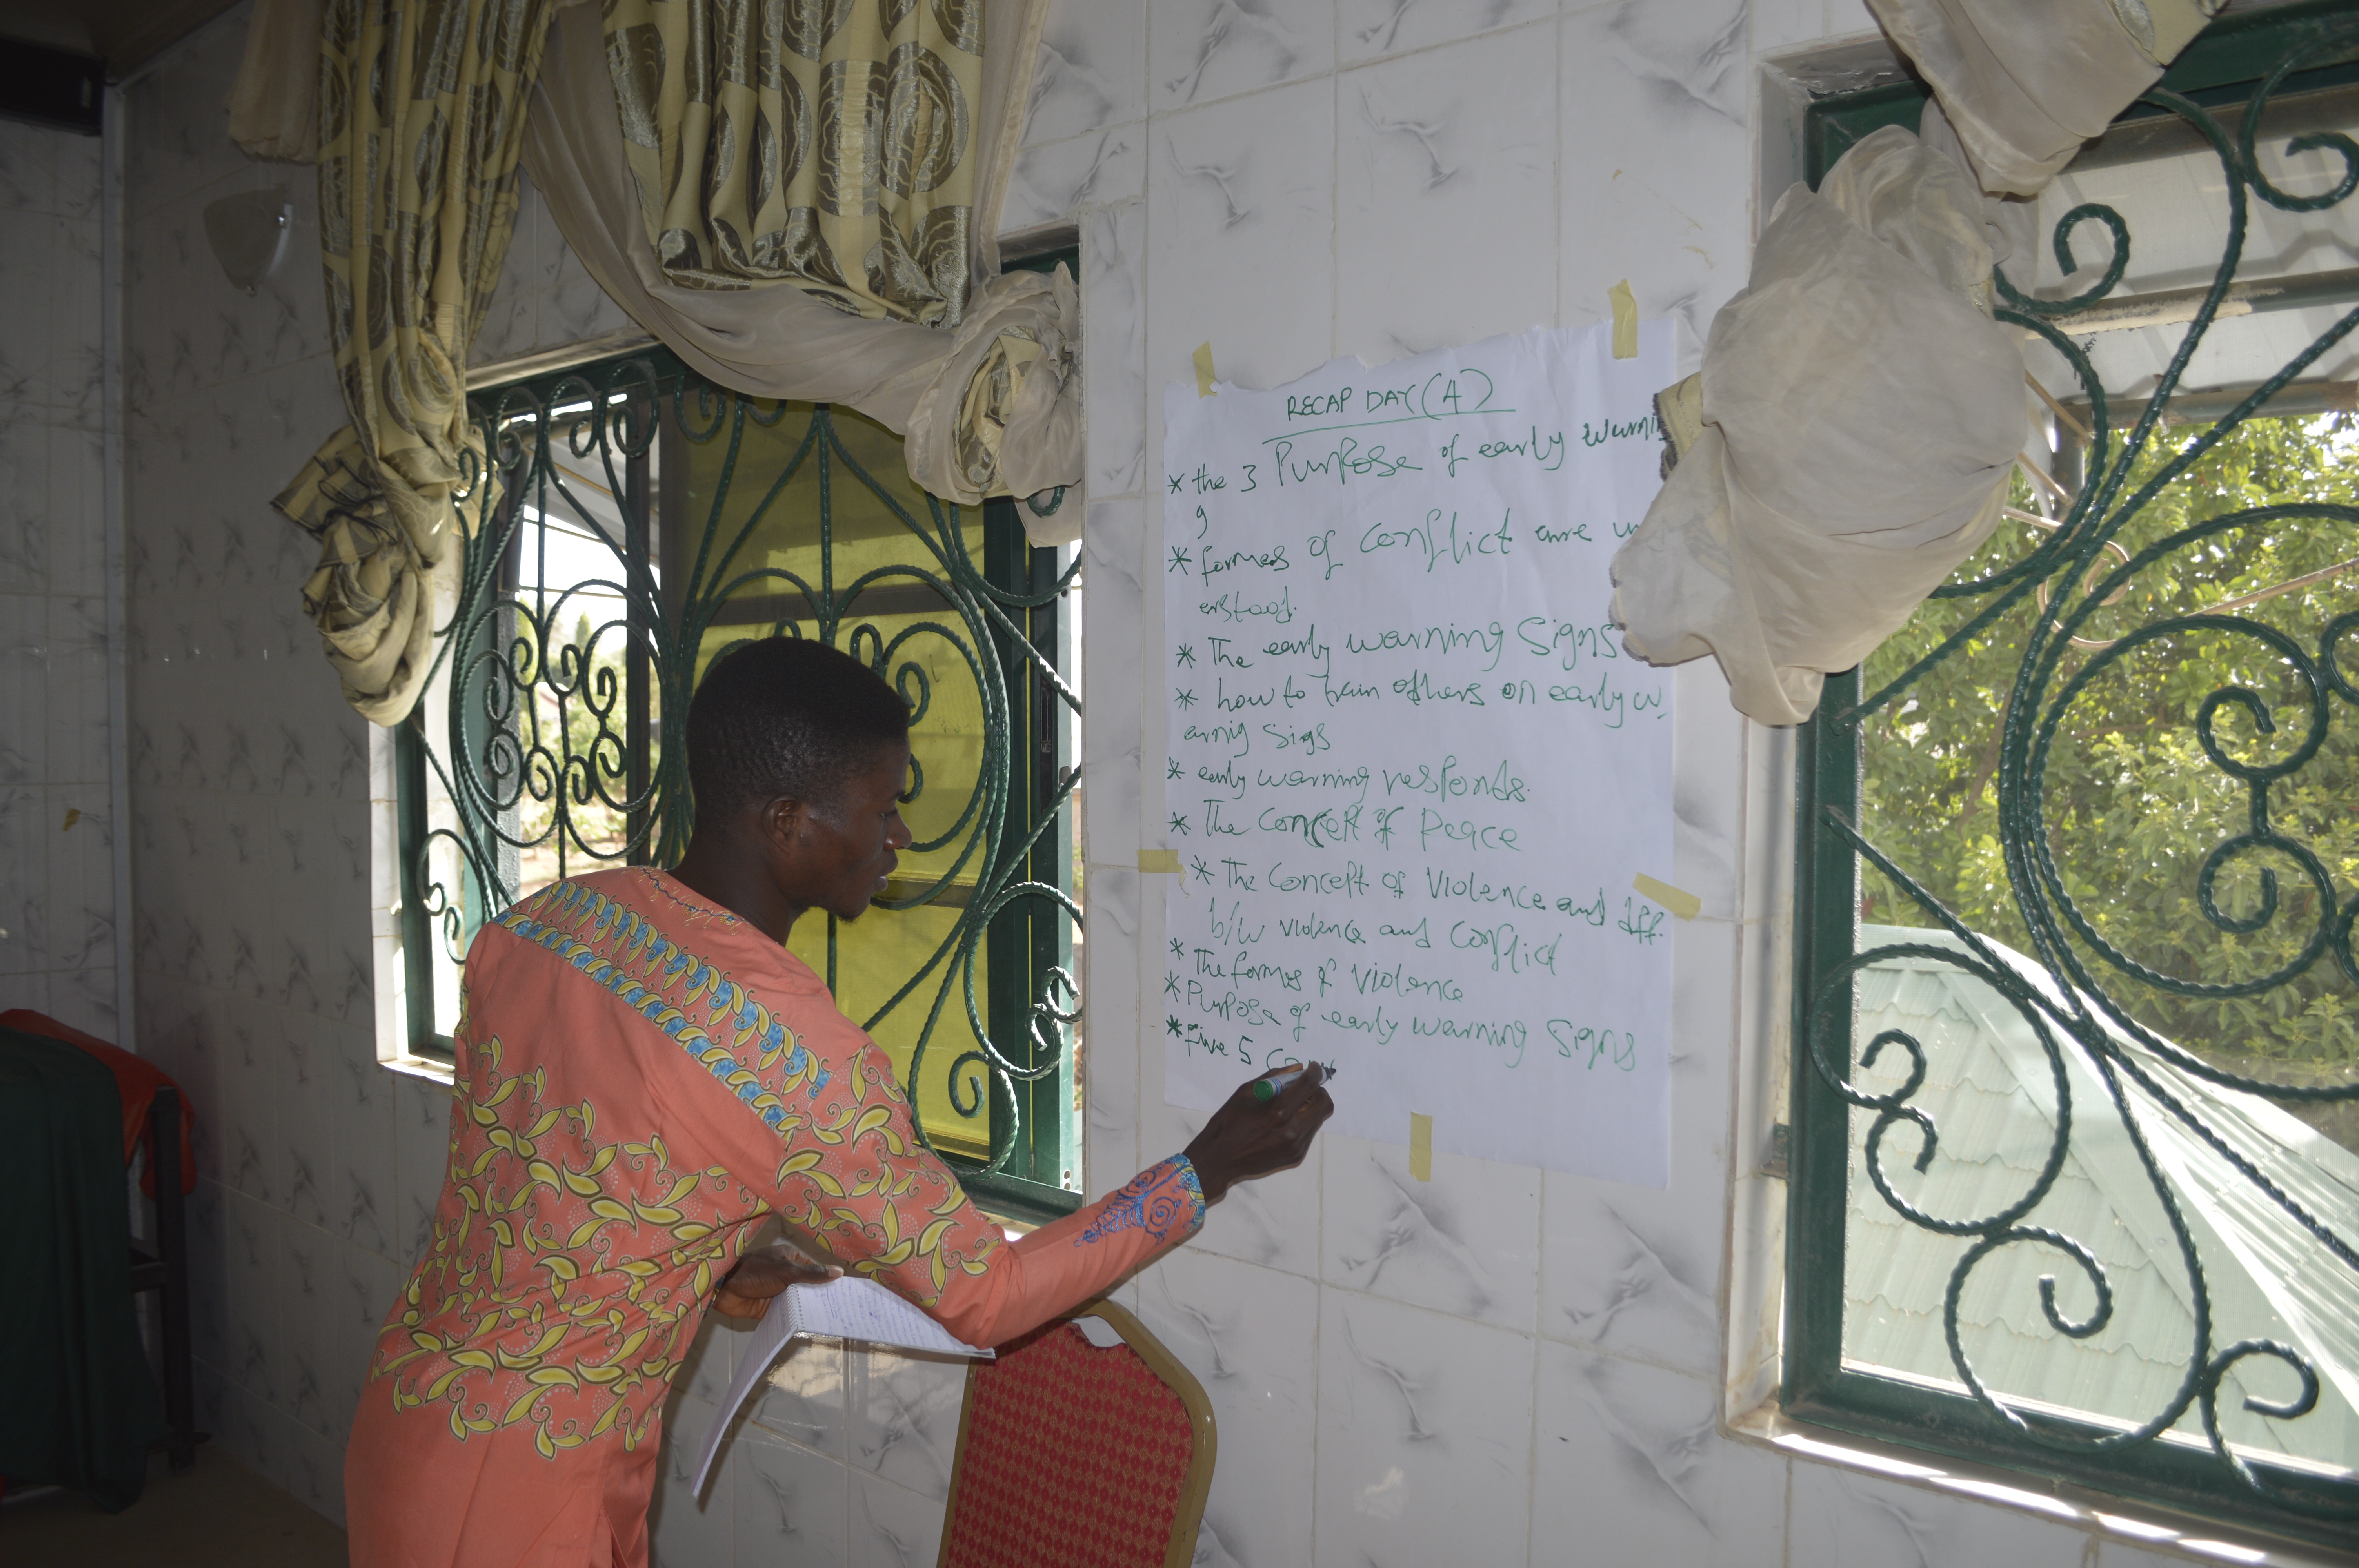 RECAP DAY (4)
* the 3 Purpose of early warnin
g
* formes of conflict are
erstood.
* The early warning Signs
* how to train others on early w
arnig Sigs
* early warning responds.
* The Concept of Peace
* The Concept of Violence and diff.
b/w violence and Conflict
* The formes of Violence
* Purpose of early warning Signs
* five 5